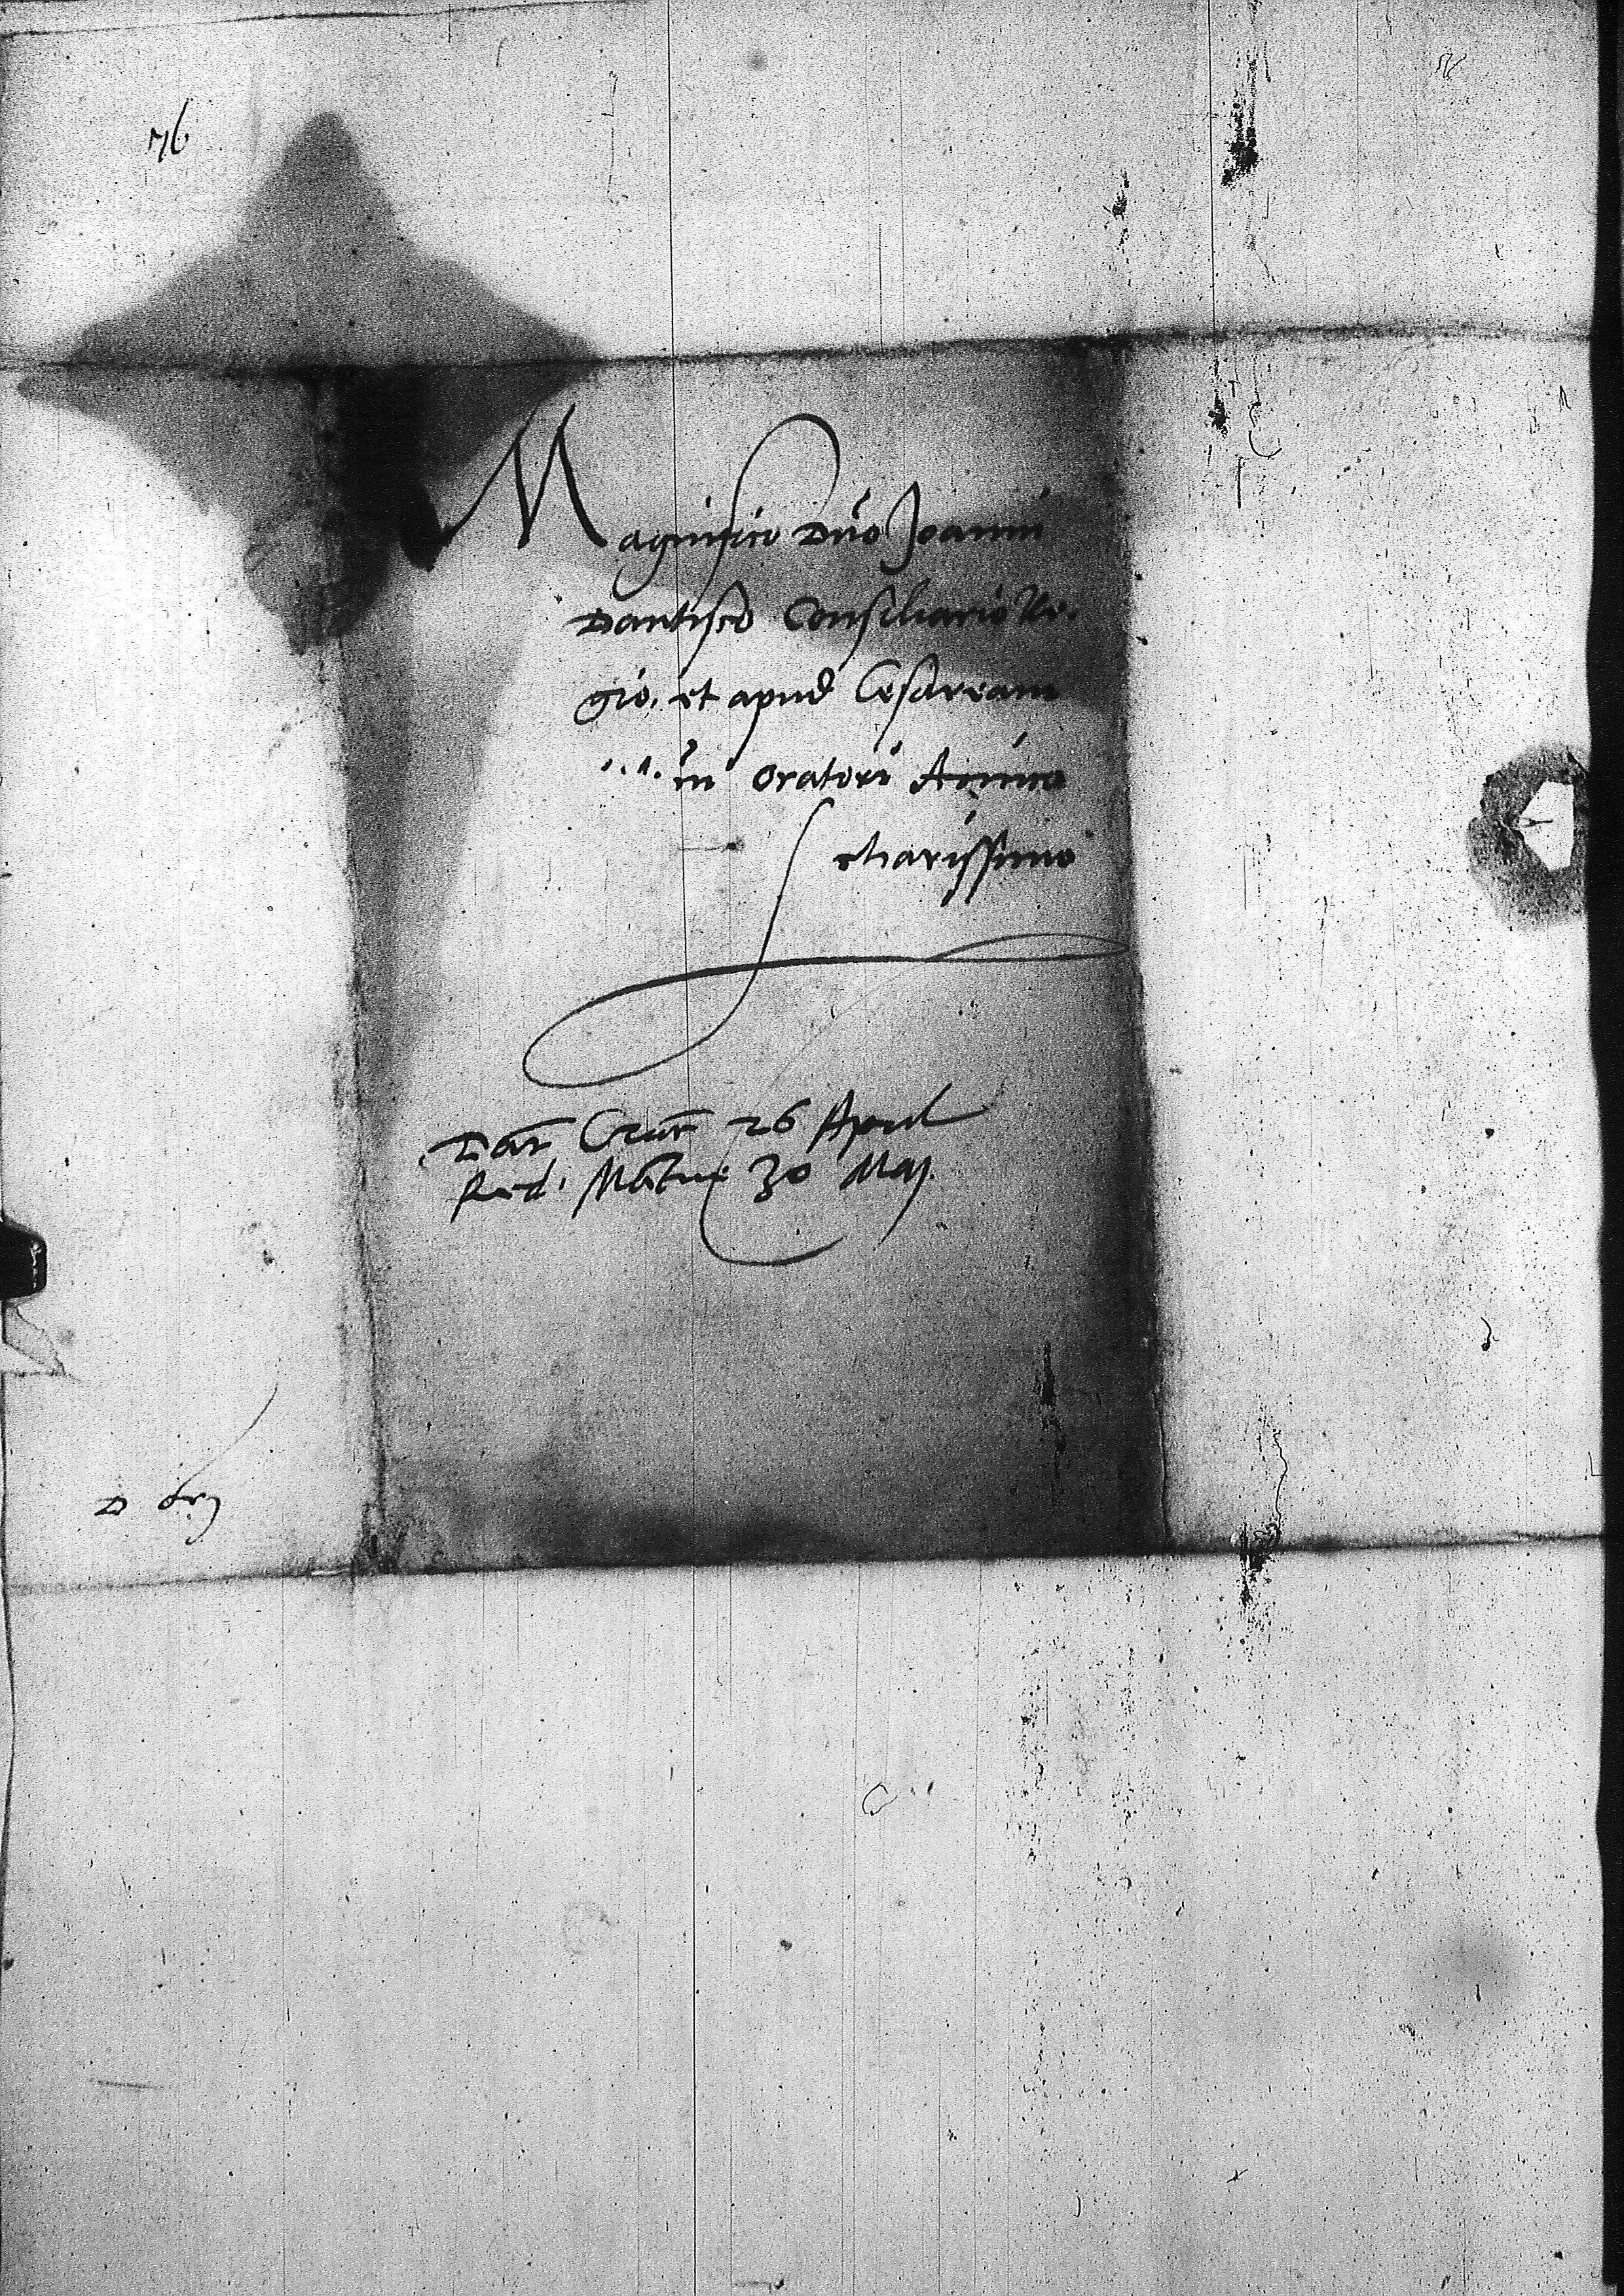 76
Magnifico Dno Joanni
Dantisco Consiliario Re-
gio. et apud Cesaream
M. tem oratori Amico
charissimo
Dat Crac 26 April
Red. Mantue 30 Maj.